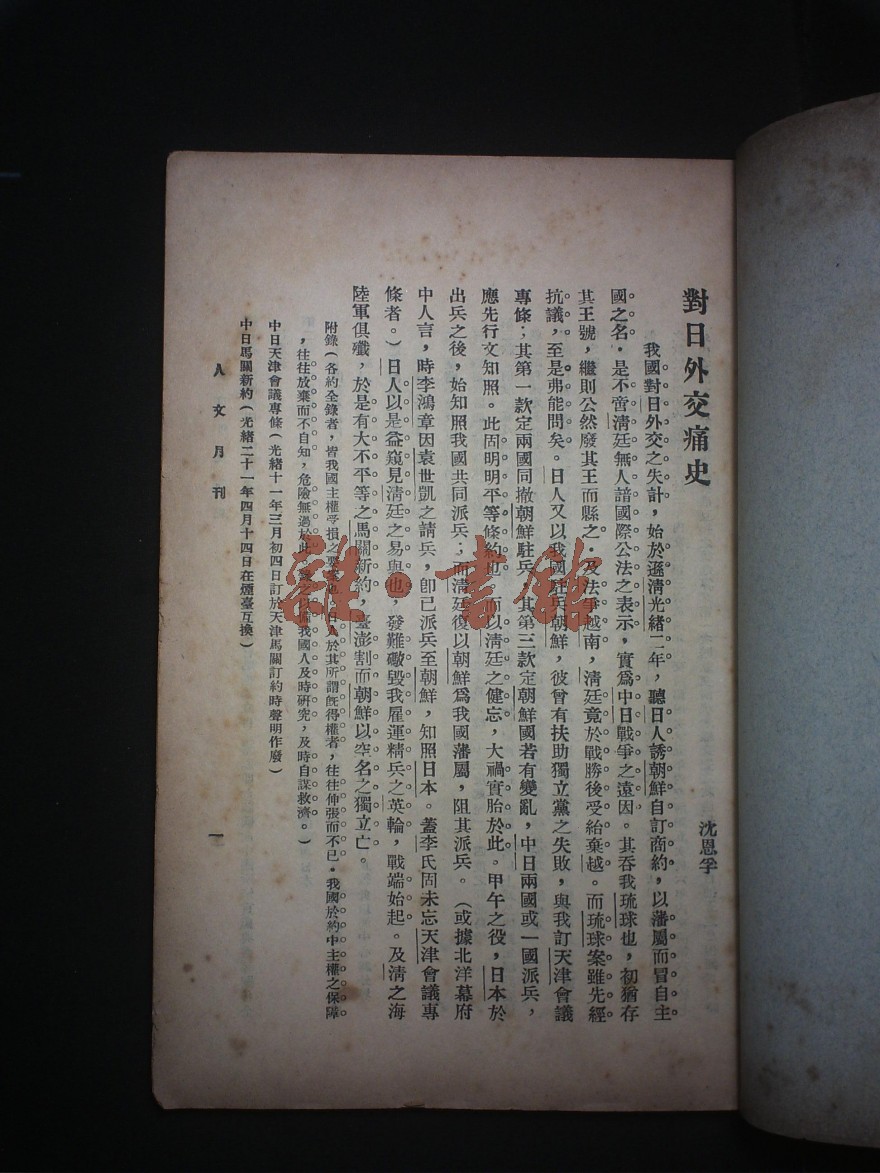 對日外交痛史
沈恩孚
我國對日外交之失計，始於遜淸光緖二年，聽日人誘朝鮮自訂商約，以藩屬而冒自主
國之名。是不啻淸廷無人諳國際公法之表示，實爲中日戰爭之遠因。其吞我琉球也，初猶存
其王號，繼則公然廢其王而縣之。及法爭越南，淸廷竟於戰勝後受紿棄越。而琉球案雖先經
抗議，至是弗能問矣。日人又以我國駐兵朝鮮，彼曾有扶助獨立黨之失敗，與我訂天津會議
專條；其第一款定兩國同撤朝鮮駐兵，其第三款定朝鮮國若有變亂，中日兩國或一國派兵，
應先行文知照。此固明明平等條約也，而以淸廷之健忘，大禍實胎於此。甲午之役，日本於
出兵之後，始知照我國共同派兵；而淸廷復以朝鮮爲我國藩屬，阻其派兵。（或據北洋幕府
中人言，時李鴻章因袁世凱之請兵，卽已派兵至朝鮮，知照日本。蓋李氏固未忘天津會議專
條者。）日人以是益窺見淸廷之易與也，發難礮毀我雇運精兵之英輪，戰端始起。及淸之海
陸軍俱殲，於是有大不平等之馬關新約，臺澎割而朝鮮以空名之獨立亡。
附錄（各約全錄者，皆我國主權受損之要案也。日人於其所謂旣得權者，往往伸張而不已。我國於約中主權之保障
，往往放棄而不自知，危險無過於此，錄之以備我國人及時硏究，及時自謀救濟。）
中日天津會議專條（光緖十一年三月初四日訂於天津馬關訂約時聲明作廢）
中日馬關新約（光緖二十一年四月十四日在煙臺互換）
人文月刊
一
雜·書館